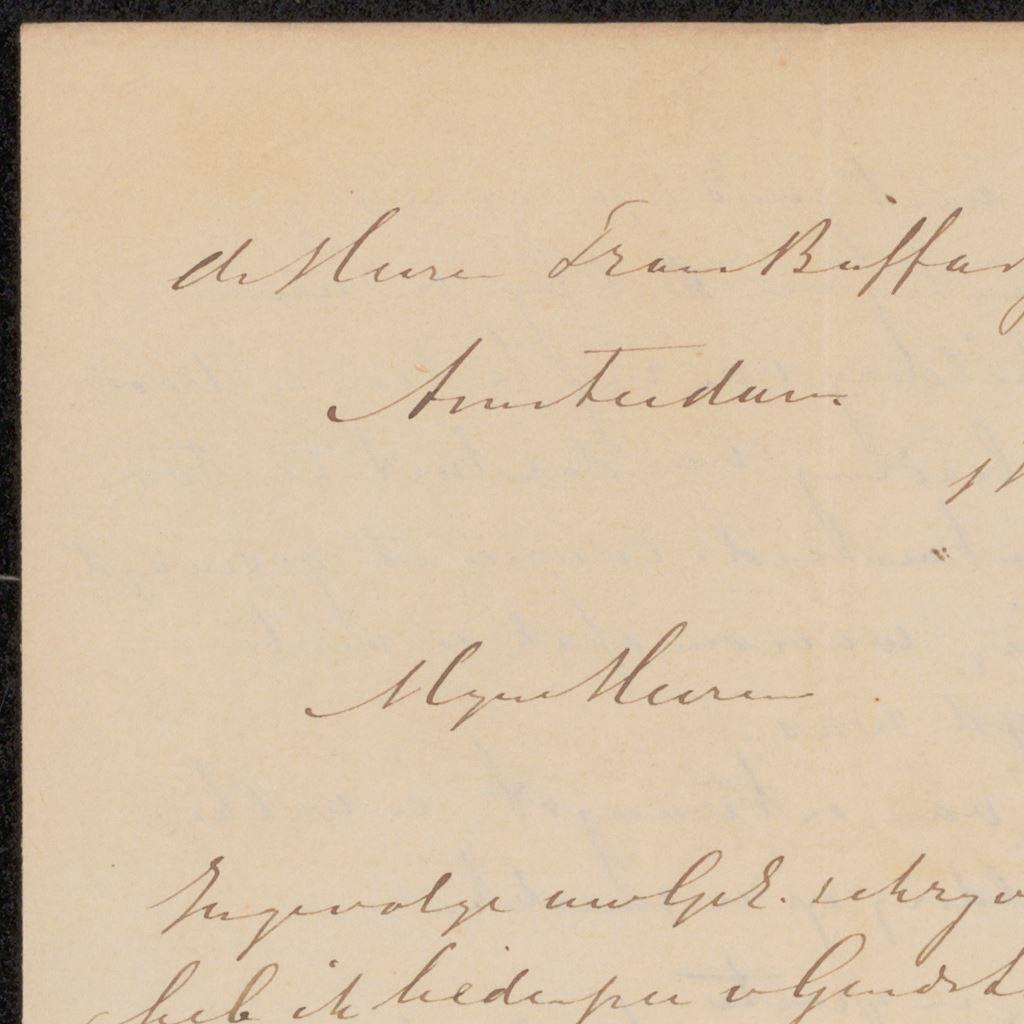 de Heeren Frans Buffa
Amsterdam
Myne Heeren
Ingevolge uw Geë. schryv
heb ik heden per v Gend &